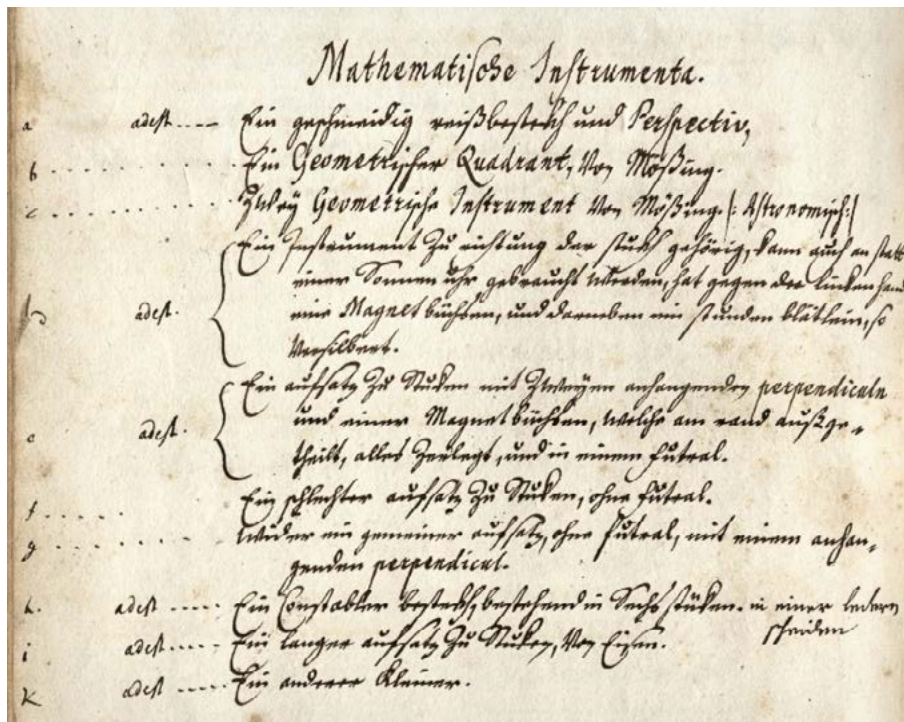 Mathematische Instrumenta.
a adest ..... Ein geschmeidig reißbestekh und Perspectiv,
b . . . . . . . . . . . Ein Geometrischer Quadrant, Von Mößing.
c . . . . . . . . . . . Zwey Geometrische Instrument Von Mößing. /: Astronomisch:/
Ein Instrument Zu richtung der stukh gehörig, kann auch an statt
einer Sonnen uhr gebraucht werden, hat gegen der linken hand
adest. eine Magnet büchsen, und darneben ein stunden blätlein, so
Versilbert.
Ein aufsatz Zu Stuken mit Zweyen anhangenden perpendiculn
e adest. und einer Magnet büchsen, welche am rand außge-
theilt, alles Zerlegt, und in einem futral.
f . . . . . . Ein schlechter aufsatz Zu Stuken, ohne futral.
g . . . . . . . . . Wider ein gemeiner aufsatz, ohne futral, mit einem anhan-
genden perpendicul.
h. adest ..... Ein Constabler bestekh, bestehend in Sechs stüken. in einer ledern
scheiden
i adest ..... Ein langer aufsatz Zu Stuken, Von Eisen.
K adest ..... Ein anderer Kleiner.